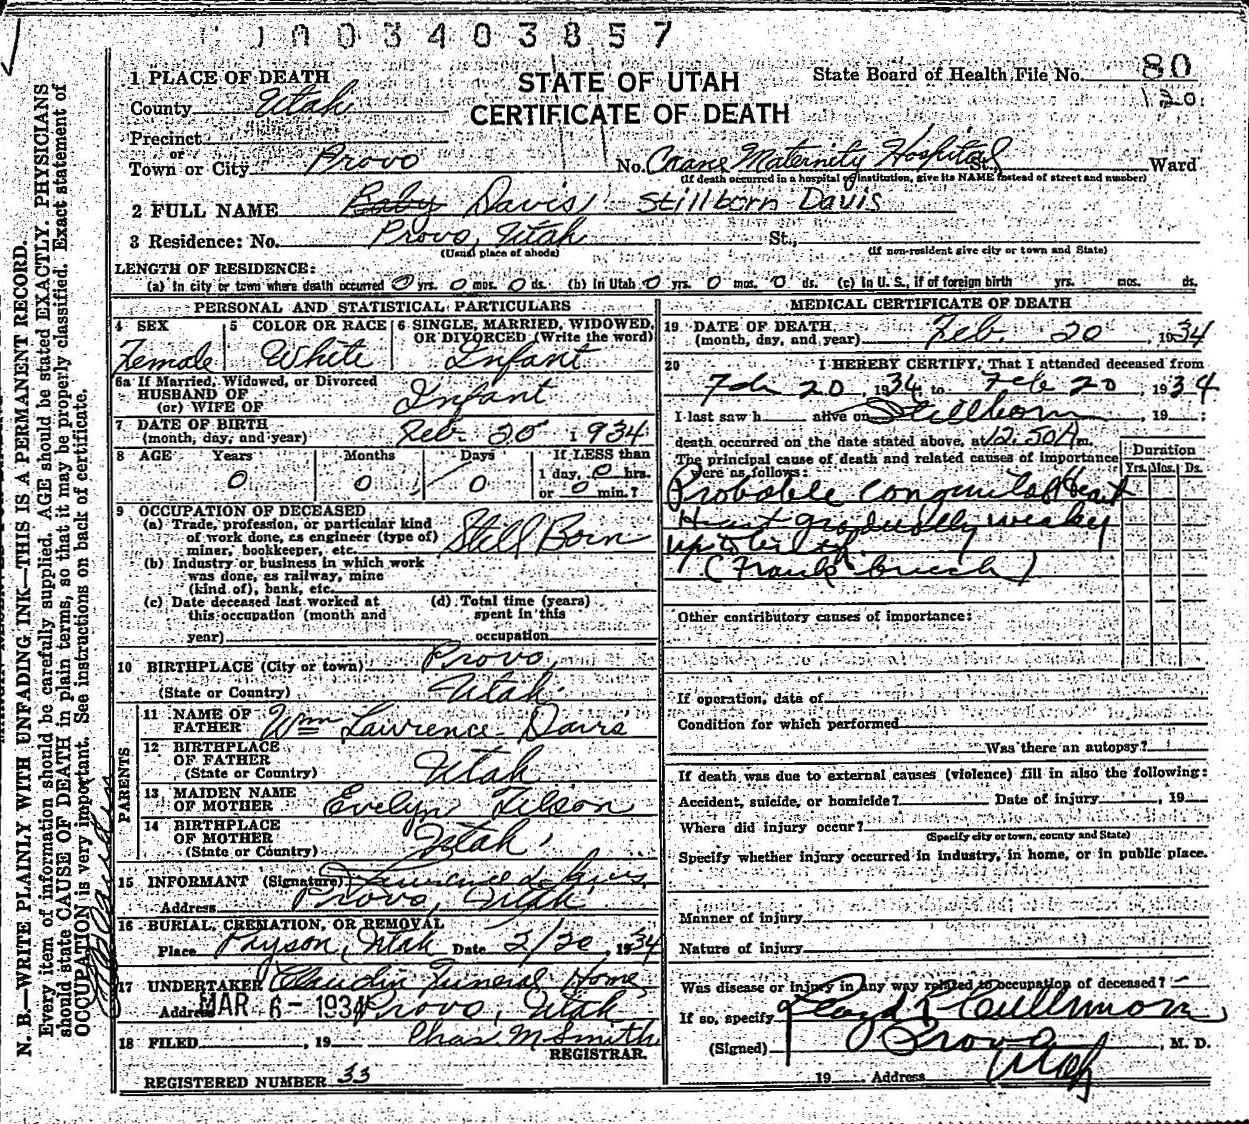 0003403857
STATE OF UTAH
CERTIFICATE OF DEATH
State Board of Health File No. 80
120
1 PLACE OF DEATH
County Utah
Precinct
or
Town or City Provo No. Crane Maternity Hospital St., Ward
(If death occurred in a hospital or institution, give its NAME instead of street and number)
2 FULL NAME Baby Davis Stillborn Davis
3 Residence: No. Provo, Utah St.,
(Usual place of abode) (If non-resident give city or town and State)
LENGTH OF RESIDENCE:
(a) In city or town where death occurred 0 yrs. 0 mos. 0 ds. (b) In Utah 0 yrs. 0 mos. 0 ds. (c) In U. S., if of foreign birth yrs. mos. ds.
PERSONAL AND STATISTICAL PARTICULARS
4 SEX 5 COLOR OR RACE 6 SINGLE, MARRIED, WIDOWED,
OR DIVORCED (Write the word)
Female White Infant
6a If Married, Widowed, or Divorced
HUSBAND OF
(or) WIFE OF Infant
7 DATE OF BIRTH
(month, day, and year) Feb. 20 1934
8 AGE Years Months Days If LESS than
1 day, 0 hrs.
0 0 0 or 0 min.?
9 OCCUPATION OF DECEASED
(a) Trade, profession, or particular kind
of work done, as engineer (type of)
miner, bookkeeper, etc. Still Born
(b) Industry or business in which work
was done, as railway, mine
(kind of), bank, etc.
(c) Date deceased last worked at
this occupation (month and
year)
(d) Total time (years)
spent in this
occupation
10 BIRTHPLACE (City or town) Provo,
(State or Country) Utah.
PARENTS
11 NAME OF
FATHER Wm Lawrence Davis
12 BIRTHPLACE
OF FATHER
(State or Country) Utah
13 MAIDEN NAME
OF MOTHER Evelyn Tilson
14 BIRTHPLACE
OF MOTHER
(State or Country) Utah
15 INFORMANT (Signature) Lawrence Davis
Address Provo, Utah
16 BURIAL, CREMATION, OR REMOVAL
Place Payson, Utah Date 2/20, 1934
17 UNDERTAKER Claudin Funeral Home
Address Provo, Utah
MAR 6 - 1934
18 FILED , 19 Chas. M Smith
REGISTRAR.
REGISTERED NUMBER 33
MEDICAL CERTIFICATE OF DEATH
19 DATE OF DEATH
(month, day, and year) Feb. 20, 1934
20 I HEREBY CERTIFY, That I attended deceased from
Feb 20, 1934 to Feb 20, 1934
I last saw h alive on Stillborn, 19 ;
death occurred on the date stated above, at 12.50A m.
The principal cause of death and related causes of importance
were as follows:
Duration
Yrs. Mos. Ds.
Probable congenital Heart
Heart gradually weaker
up to birth.
(Frank breech)
Other contributory causes of importance:
If operation, date of
Condition for which performed
Was there an autopsy?
If death was due to external causes (violence) fill in also the following:
Accident, suicide, or homicide? Date of injury , 19
Where did injury occur?
(Specify city or town, county and State)
Specify whether injury occurred in industry, in home, or in public place.
Manner of injury
Nature of injury
Was disease or injury in any way related to occupation of deceased? -
If so, specify
(Signed) Lloyd L Cullimore, M. D.
Provo
19 Address Utah
N. B.—WRITE PLAINLY WITH UNFADING INK—THIS IS A PERMANENT RECORD.
Every item of information should be carefully supplied. AGE should be stated EXACTLY. PHYSICIANS
should state CAUSE OF DEATH in plain terms, so that it may be properly classified. Exact statement of
OCCUPATION is very important. See instructions on back of certificate.